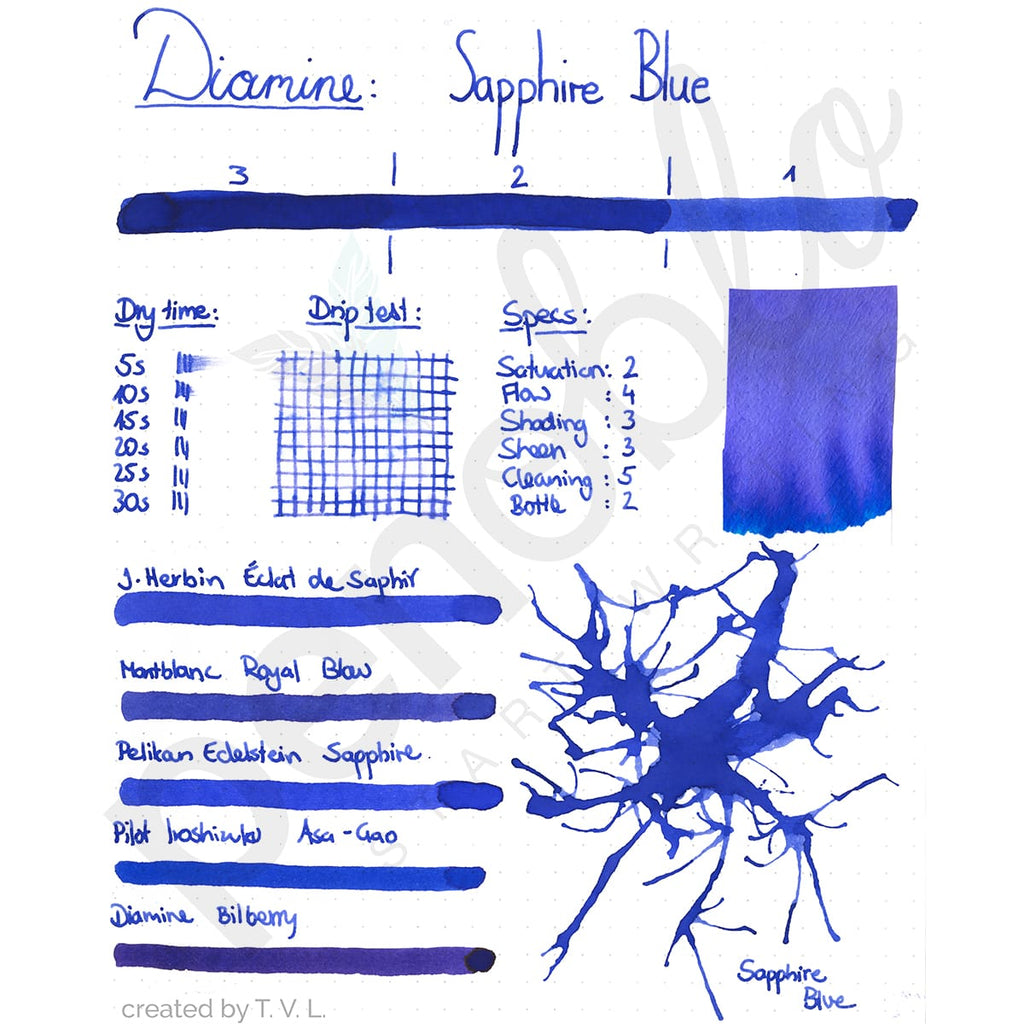 Diamine: Sapphire Blue
3 | 2 | 1
Dry time:
5s
10s
15s
20s
25s
30s
Drip test:
Specs:
Saturation: 2
Flow : 4
Shading : 3
Sheen : 3
Cleaning : 5
Bottle : 2
J. Herbin Éclat de Saphir
Montblanc Royal Blau
Pelikan Edelstein Sapphire
Pilot Iroshizuku Asa-Gao
Diamine Bilberry
Sapphire
Blue
penoblo
created by T. V. L.